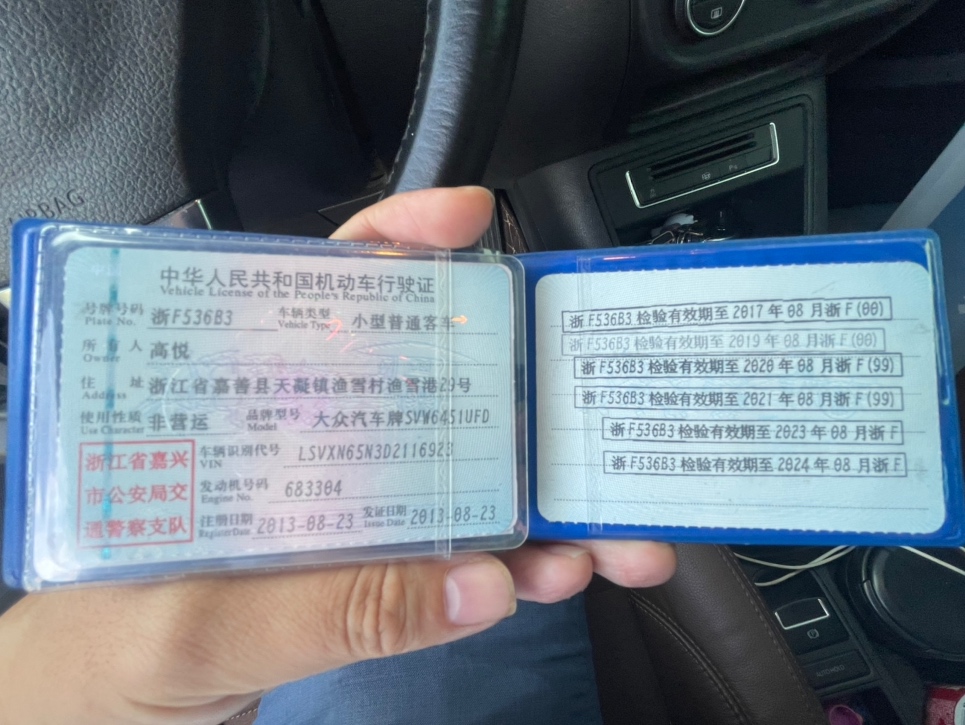 中华人民共和国机动车行驶证
Vehicle License of the People's Republic of China
号牌号码 浙F536B3 车辆类型 小型普通客车
Plate No. Vehicle Type
所有人 高悦
Owner
住址 浙江省嘉善县天凝镇渔雪村渔雪港29号
Address
使用性质 非营运 品牌型号 大众汽车牌SVW6451UFD
Use Character Model
浙江省嘉兴
市公安局交
通警察支队
车辆识别代号 LSVXN65N3D2116923
VIN
发动机号码 683304
Engine No.
注册日期 2013-08-23 发证日期 2013-08-23
Register Date Issue Date
浙F536B3 检验有效期至 2017年08月浙F(00)
浙F536B3 检验有效期至 2019年08月浙F(00)
浙F536B3 检验有效期至 2020年08月浙F(99)
浙F536B3 检验有效期至 2021年08月浙F(99)
浙F536B3 检验有效期至 2023年08月浙F
浙F536B3 检验有效期至 2024年08月浙F